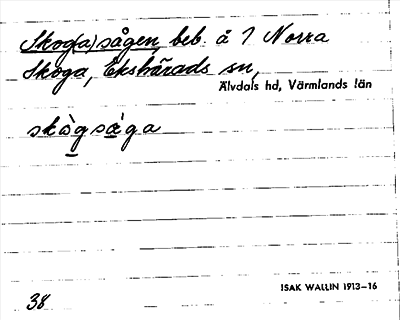 Skog(a)sågen, beb. å 1 Norra
Skoga, Ekshärads sn,
Älvdals hd, Värmlands län
skògsa̱ga
ISAK WALLIN 1913–16
38